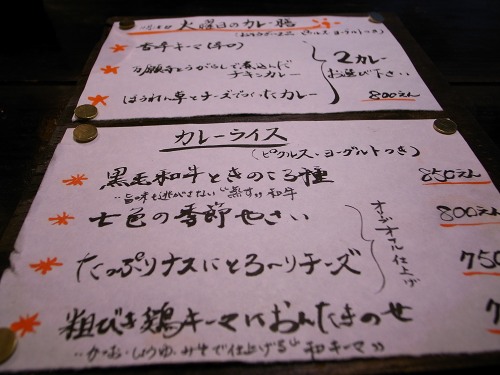 火曜日のカレー膳
香辛キーマ(辛口)
万願寺とうがらしで煮込んだ
チキンカレー
ほうれん草とチーズでつくったカレー
2カレー
お選び下さい
800えん
カレーライス
(ピクルス・ヨーグルトつき)
黒毛和牛ときのこ3種 850えん
"旨味も逃がさない"蒸す"和牛
七色の季節やさい 800えん
たっぷりナスにとろ〜りチーズ 750
オリジナル仕上げ
粗びき鶏キーマにおんたまのせ 7
"かつお・しょうゆ・みそで仕上げる"和キーマ"